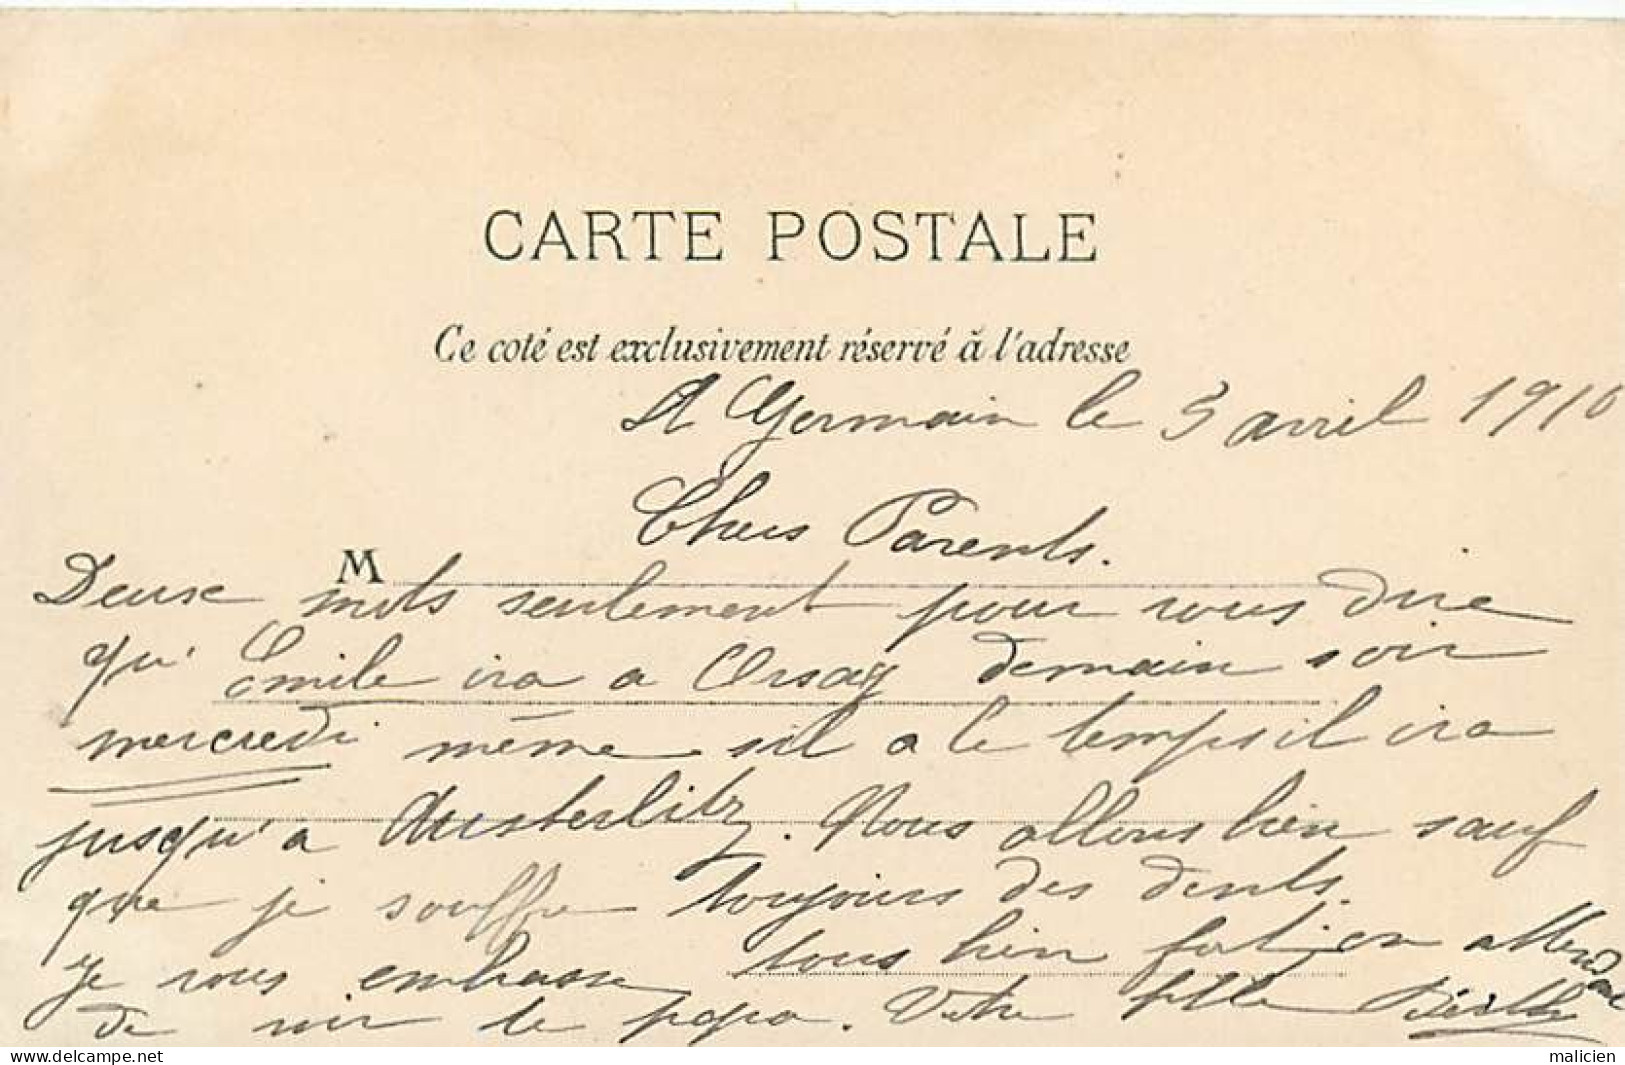 CARTE POSTALE
Ce coté est exclusivement réservé à l'adresse
St Germain le 5 avril 1910
Chers Parents.
M
Deux mots seulement pour vous dire
qu'Emile ira a Orsay demain soir
mercredi même sil a le temps il ira
jusqu'a Austerlitz. Nous allons bien sauf
que je souffre toujours des dents.
Je vous embrasse tous bien fort, en attendant
de voir le papa. Votre fille
delcampe.net
malicien